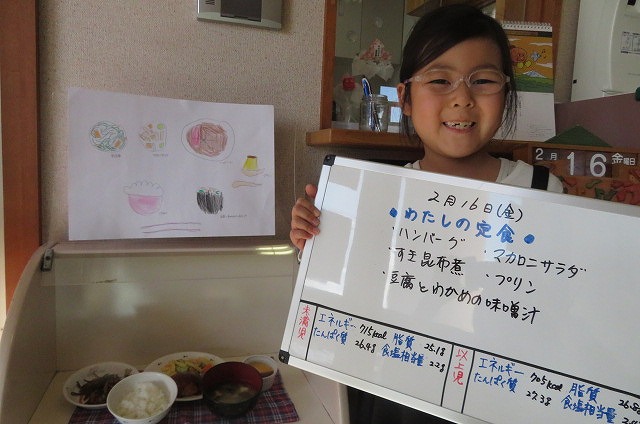 2月16金曜日
2月16日(金)
•わたしの定食•
・ハンバーグ ・マカロニサラダ
・すき昆布煮 ・プリン
・豆腐とわかめの味噌汁
未満児
エネルギー 715kcal 脂質 25.1g
たんぱく質 26.4g 食塩相当量 2.2g
以上児
エネルギー 705kcal 脂質 26.8
たんぱく質 27.3g 食塩相当量